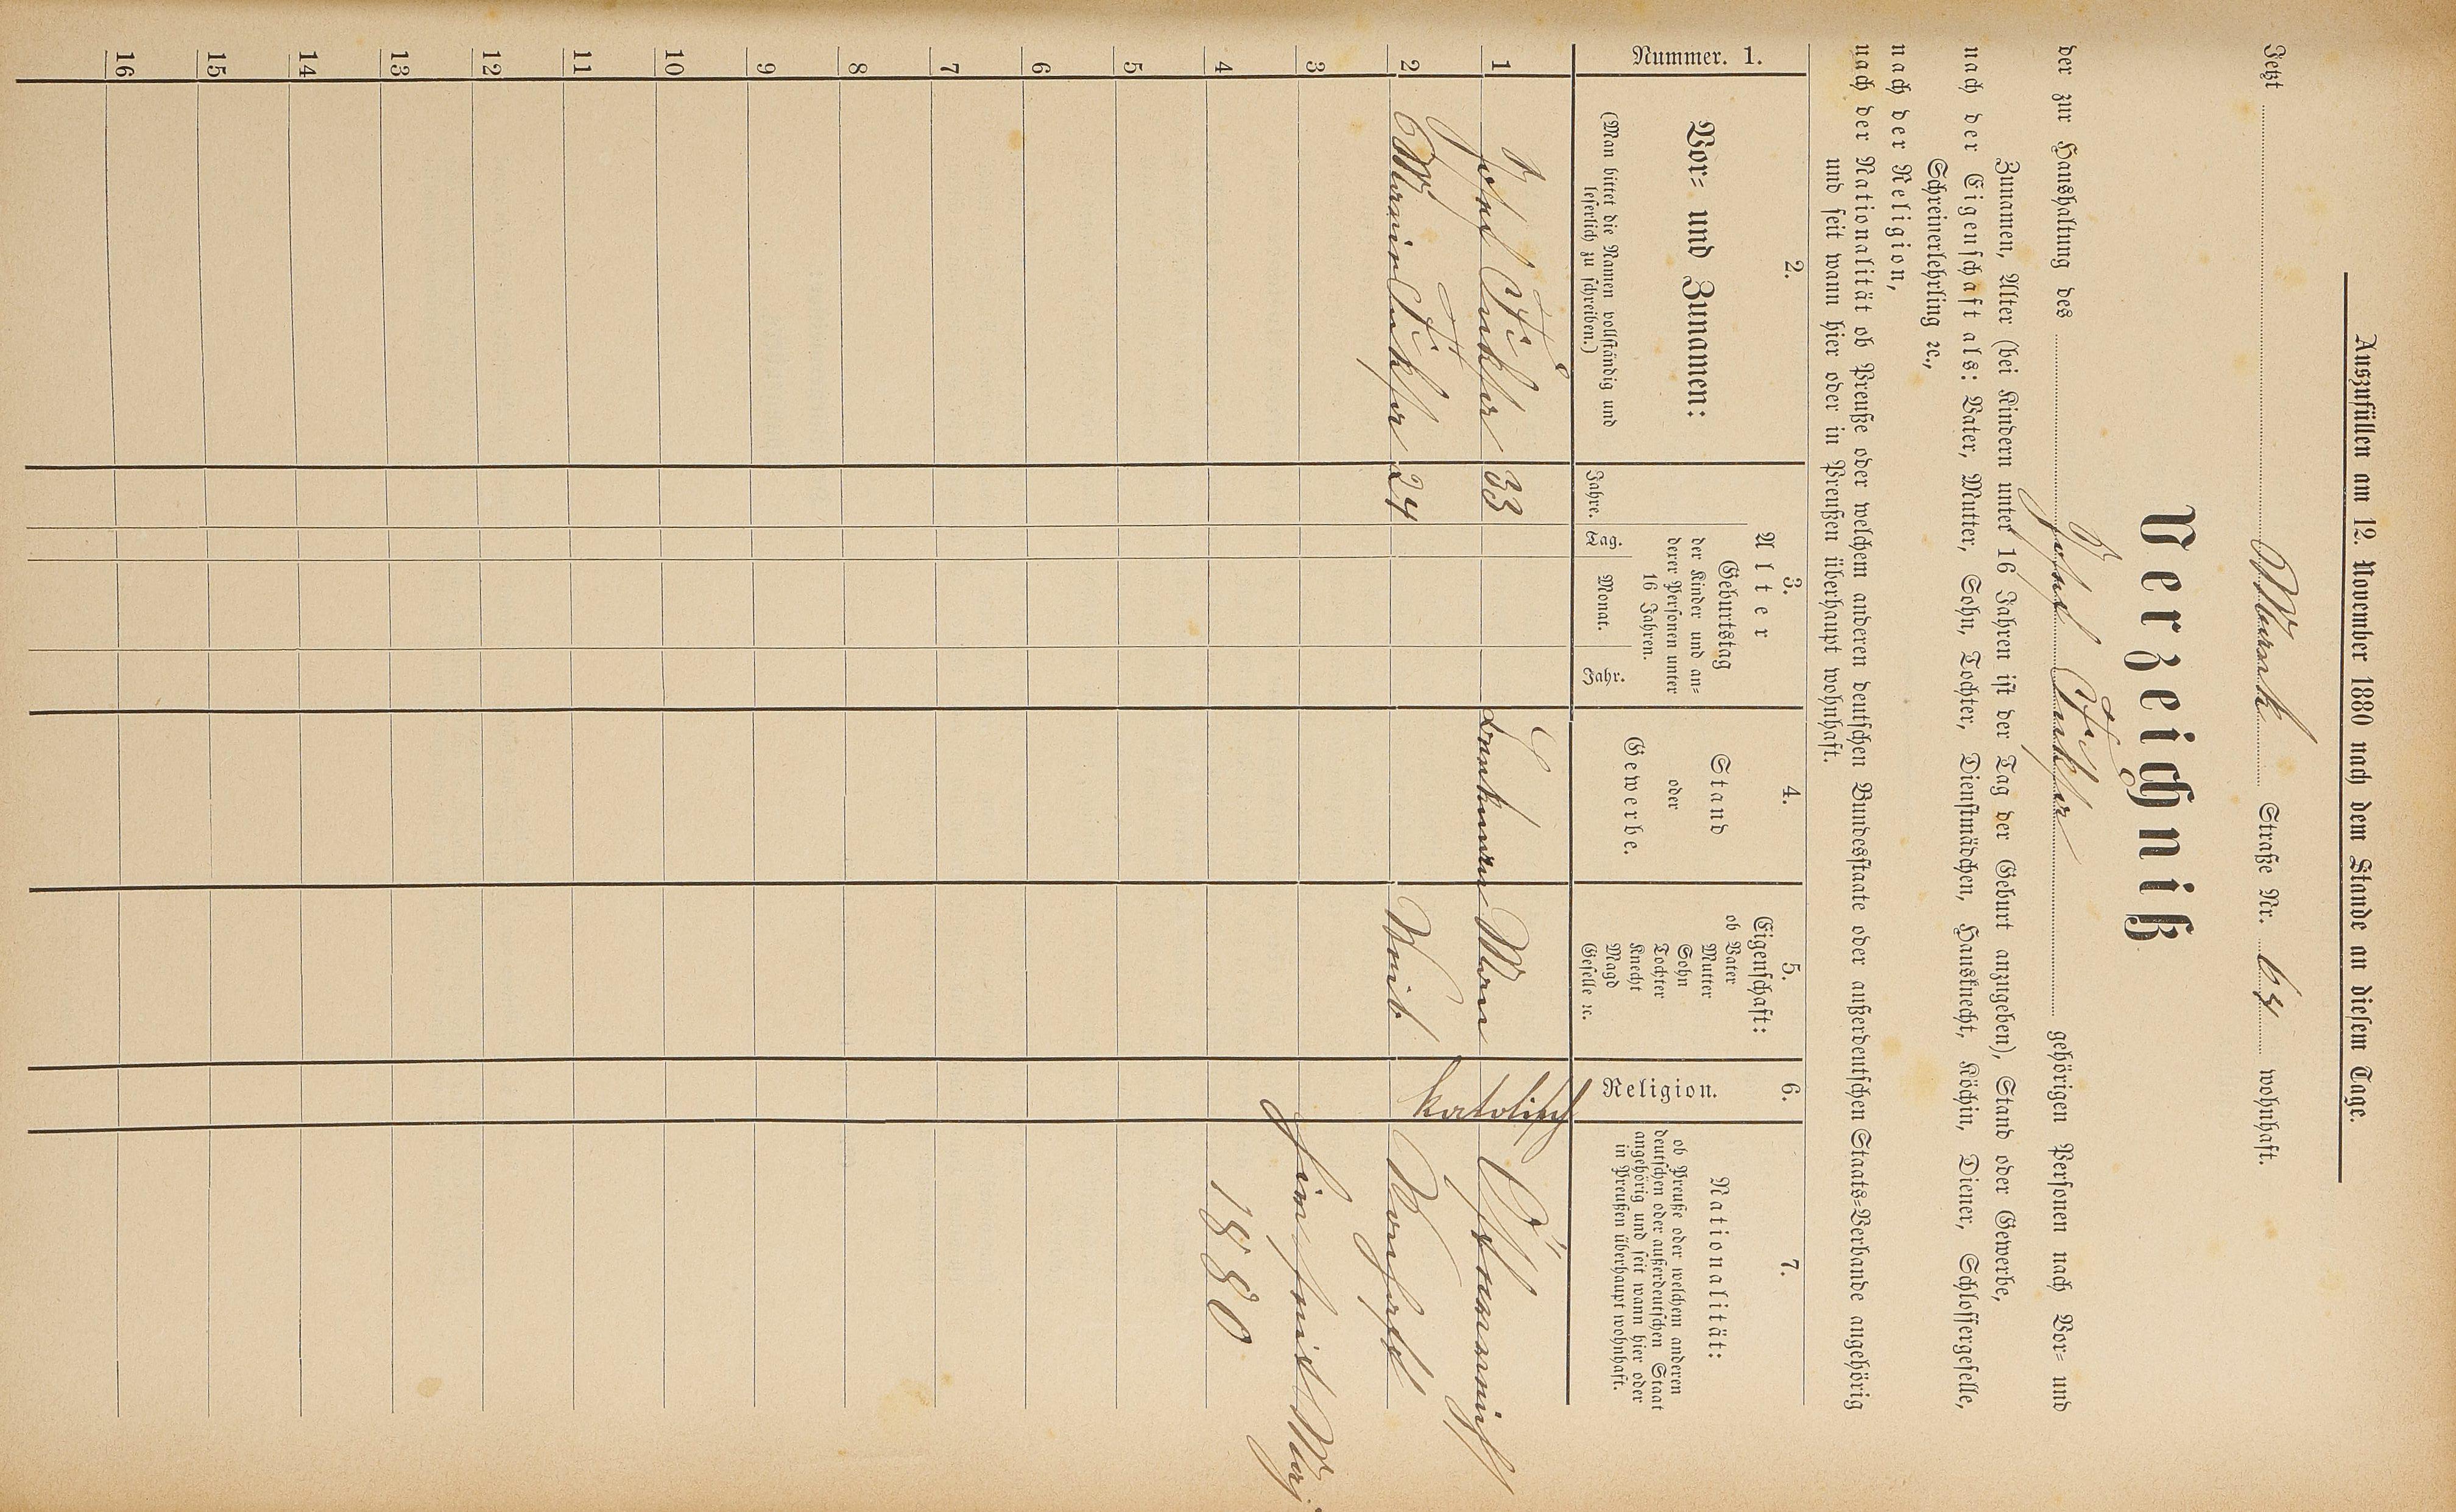 Auszufüllen am 12. November 1880 nach dem Stande an diesem Tage.
Jetzt Straße Nr. wohnhaft.
Verzeichniß
der zur Haushaltung des Josef gehörigen Personen nach Vor= und
Zunamen, Alter (bei Kindern unter 16 Jahren ist der Tag der Geburt anzugeben), Stand oder Gewerbe,
nach der Eigenschaft als: Vater, Mutter, Sohn, Tochter, Dienstmädchen, Hausknecht, Köchin, Diener, Schlossergeselle,
Schreinerlehrling ꝛc.,
nach der Religion,
nach der Nationalität ob Preuße oder welchem anderen deutschen Bundesstaate oder außerdeutschen Staats=Verbande angehörig
und seit wann hier oder in Preußen überhaupt wohnhaft.
Nummer. 1.
2.
Vor= und Zunamen:
(Man bittet die Namen vollständig und
leserlich zu schreiben.)
3.
Alter
Jahre.
Geburtstag
der Kinder und an=
derer Personen unter
16 Jahren.
Tag. Monat. Jahr.
4.
Stand
oder
Gewerbe.
5.
Eigenschaft:
ob Vater
Mutter
Sohn
Tochter
Knecht
Magd
Geselle ꝛc.
6.
Religion.
7.
Nationalität:
ob Preuße oder welchem anderen
deutschen oder außerdeutschen Staat
angehörig und seit wann hier oder
in Preußen überhaupt wohnhaft.
1 Josef 33 Mann katolisch
2 24 Weib
3 hier seit Mai
4 1880
5
6
7
8
9
10
11
12
13
14
15
16